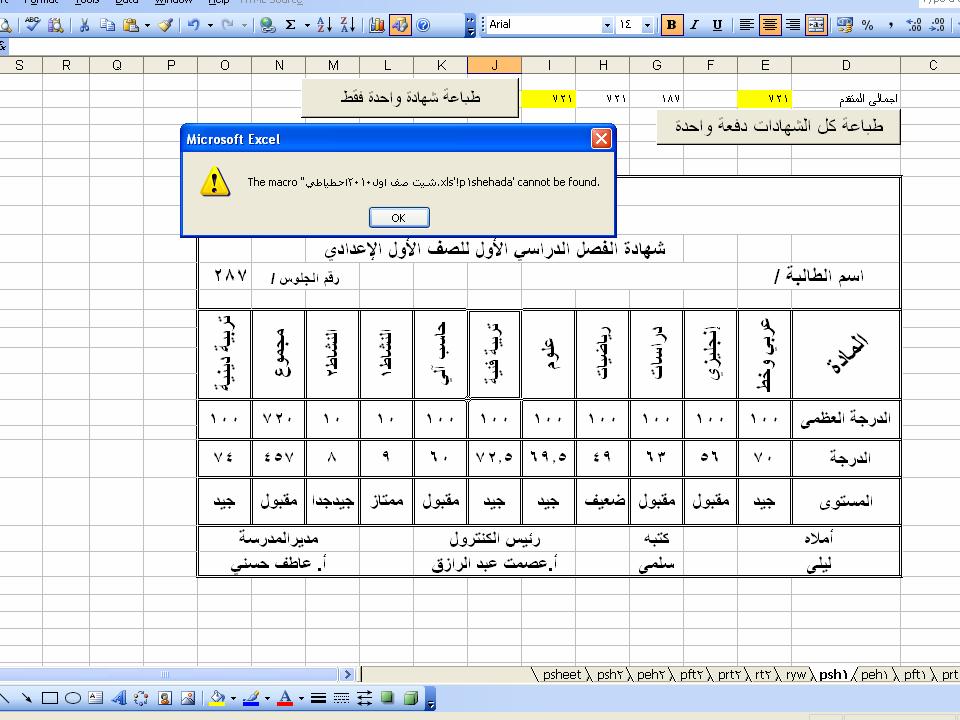 Format Tools Data Window Help HTML Source
Arial ١٤ B I U
S R Q P O N M L K J I H G F E D C
طباعة شهادة واحدة فقط
اجمالى المتقدم ٧٢١ ١٨٧ ٧٢١ ٧٢١
طباعة كل الشهادات دفعة واحدة
Microsoft Excel
The macro "شيت صف اول٢٠١٠احطياطي.xls'!p١shehada' cannot be found.
OK
شهادة الفصل الدراسي الأول للصف الأول الإعدادي
اسم الطالبة / رقم الجلوس / ٢٨٧
المادة عربي وخط إنجليزي دراسات رياضيات علوم تربية فنية حاسب آلي النشاط١ النشاط٢ مجموع تربية دينية
الدرجة العظمى ١٠٠ ١٠٠ ١٠٠ ١٠٠ ١٠٠ ١٠٠ ١٠٠ ١٠ ١٠ ٧٢٠ ١٠٠
الدرجة ٧٠ ٥٦ ٦٣ ٤٩ ٦٩,٥ ٧٢,٥ ٦٠ ٩ ٨ ٤٥٧ ٧٤
المستوى جيد مقبول مقبول ضعيف جيد جيد مقبول ممتاز جيدجدا مقبول جيد
أملاه كتبه رئيس الكنترول مديرالمدرسة
ليلي سلمي أ.عصمت عبد الرازق أ. عاطف حسني
psheet psh٢ peh٢ pft٢ prt٢ rt٢ ryw psh١ peh١ pft١ prt